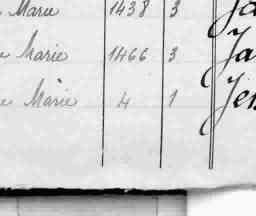 Marie 1438 3 Ja
Marie 1466 3 Ja
e Marie 4 1 Jea